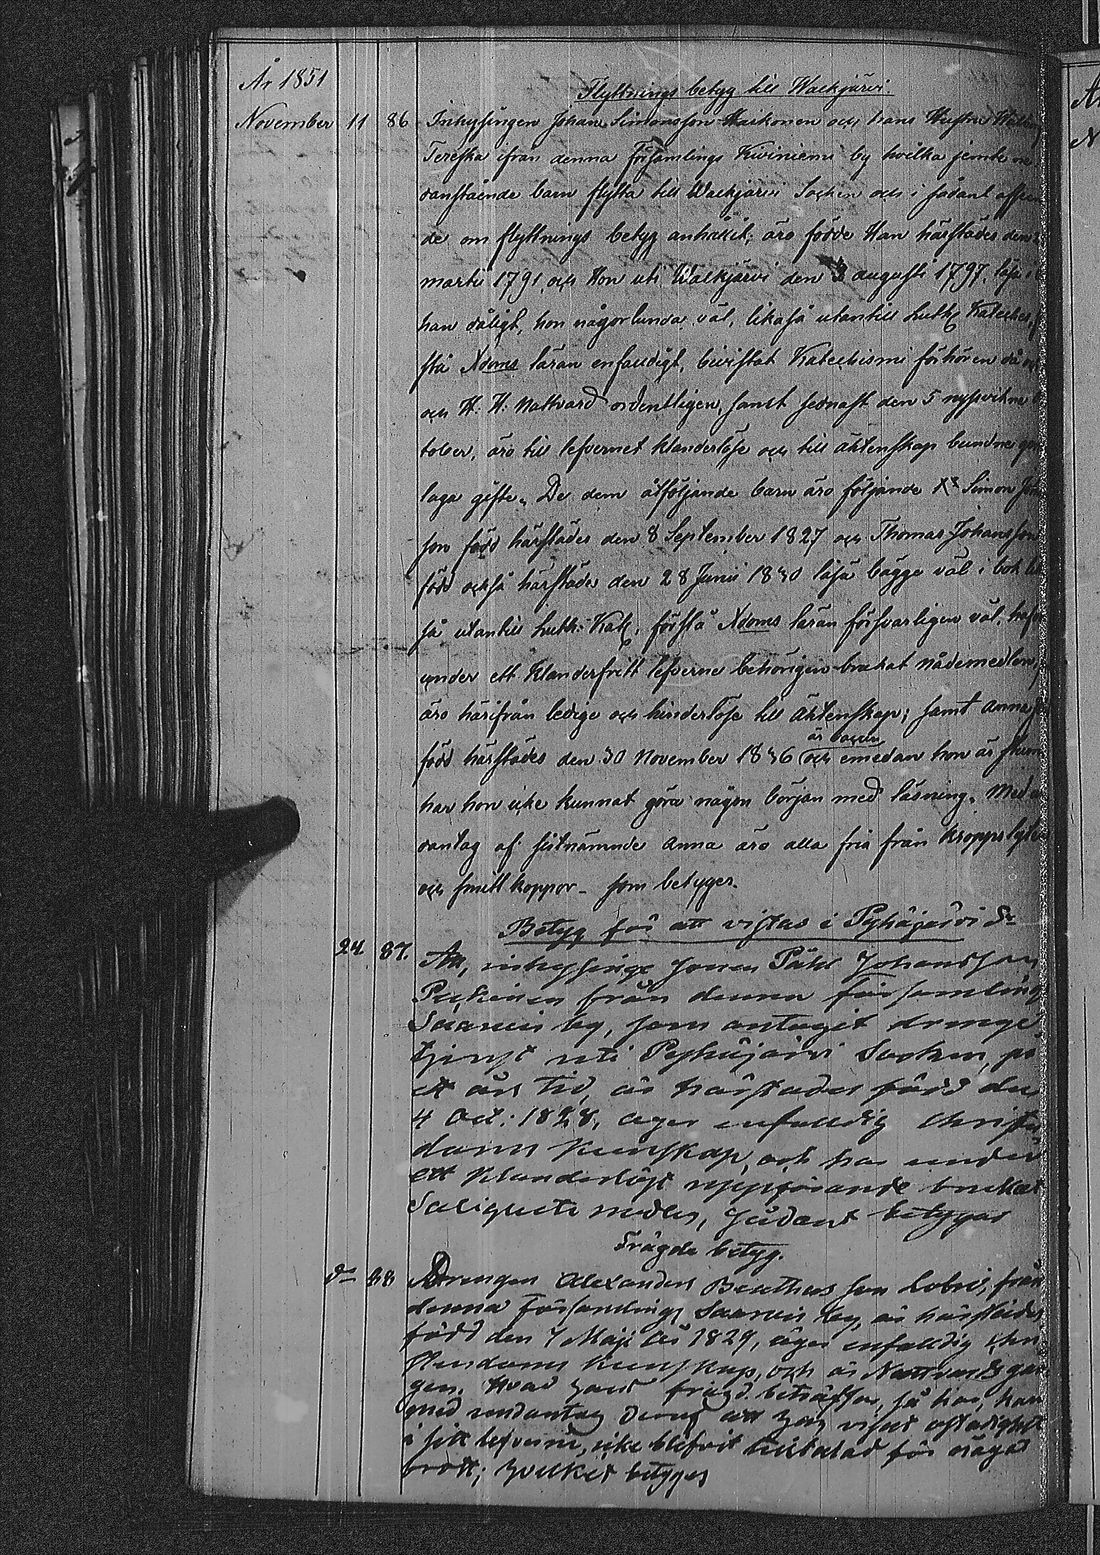 År 1851
Flyttnings betyg till Walkjärvi.
November 11 86 Inhysingen Johan Simonsson Maikonen och hans Hustru
Teressa ifrån denna församlings Kiviniemi by hvilka jemte
danstående barn flytta till Walkjärvi Socken och i sådant
de om flyttnings betyg anhållit; äro födde Han härstädes den
marti 1791, och Hon uti Walkjärvi den 3 augusti 1797, läse i
han dåligt, hon någorlunda väl, likaså utantill Luth. Kateches,
stå Xdoms läran enfaldigt, bivistat Katechismi förhören
och H. H. Nattvard ordentligen, samt sednast den 5
tober, äro till lefvernet klanderlöse och till äktenskap bundne
laga gifte. De dem åtföljande barn äro följande Simon
son född härstädes den 8 September 1827 och Thomas Johansson
född också härstädes den 28 Junii 1830 läsa bägge väl i bok
så utantill Luth: Kat, förstå Xdoms läran försvarligen väl, hafva
under ett klanderfritt lefverne behörigen brukat nådemedlen,
äro härifrån ledige och hinderlöse till äktenskap; samt Anna
född härstädes den 30 November 1836 och emedan hon är
har hon icke kunnat göra någon början med läsning. Med
dantag af sistnämnde Anna äro alla fria från kroppslyten
och smittkoppor som betyges.
Betyg för att vistas i Pyhäjärvi Sn
24. 87. Att, inhysinge sonen Påhl Johansson
från denna Församling
by, som antagit drenge
tjenst uti Pyhäjärvi Socken, på
ett års tid, är härstädes född den
4 Oct: 1828, äger enfaldig Christen
doms kunskap, och har under
ett klanderlöst uppförande brukat
Salighets medlen, sådant betygas
Frägde betyg.
do 88 Drengen Alexander son från
denna Församlings by, är härstädes
född den 7 Maji År 1829, äger enfaldig Chri
stendoms kunskap, och är Nattvards gån
gen. Hvad hans frägd beträffar, så har, han
med undantag deraf att han visat
i sitt lefverne, icke blifvit tilltalad för något
brott; hvilket betyges